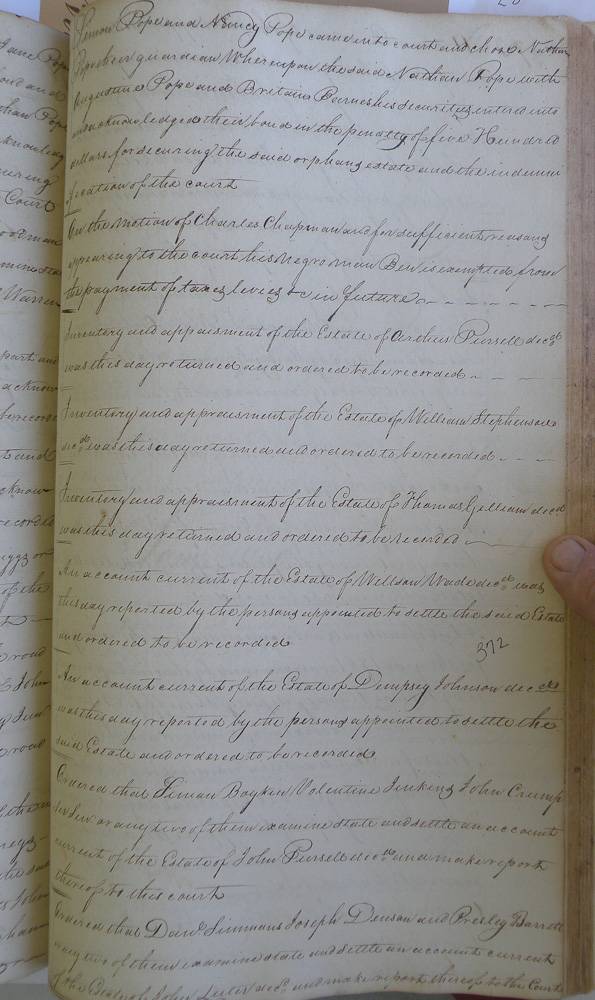 Simon Pope and Nancy Pope came into court and chose Nathan
Pope their guardian Whereupon the said Nathan Pope with
Augustine Pope and Britain Barnes his securitys entred into
and acknowledged their bond in the penalty of five Hundred
dollars for securing the said orphans estate and the indemni
fication of the court
On the motion of Charles Chapman and for sufficient reasons
appearing to the court his negro man Ben is exempted from
the payment of taxes levies &c in future
Inventory and appraisment of the Estate of Arthur Pursell decd
was this day returned and ordered to be recorded
Inventory and appraisment of the Estate of William Stephenson
decd was this day returned and ordered to be recorded
Inventory and appraisment of the Estate of Thomas Gilliam decd
was this day returned and ordered to be recorded
An account current of the Estate of Willson Wade decd was
this day reported by the persons appointed to settle the said Estate
and ordered to be recorded
372
An account current of the Estate of Dempsey Johnson decd
was this day reported by the persons appointed to settle the
said Estate and ordered to be recorded
Ordered that Simon Boykin Valentine Jenkins John Crump
or any two of them examine state and settle an account
current of the Estate of John Pursell decd and make report
thereof to this court
Ordered that Danl Simmons Joseph Denson and Presley Barrett
or any two of them examine state and settle an account current
of the Estate of John decd and make report thereof to the Court